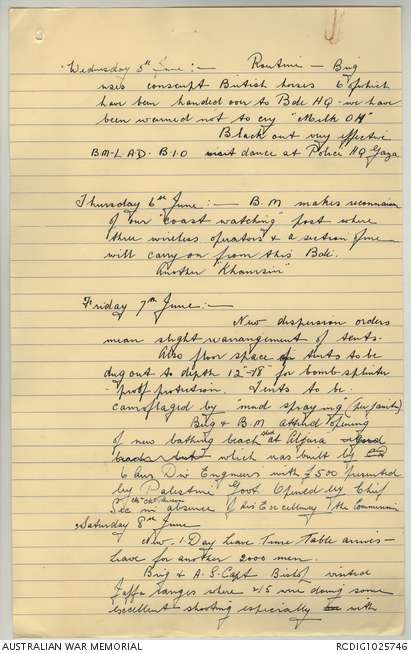 Wednesday 5th June:- Routine - Brig
uses conscript British horses 6 of which
have been handed over to Bde HQ - we have
been warned not to cry "Milk OH"
Black out very effective
B.M - L.A.D - B.I.O visit dance at Police HQ Gaza
Thursday 6th June:- B.M makes reconnaisn
of our "coast watching" post where
three wireless operators & a section of me
will carry on from this Bde.
Another "Khamsin"
Friday 7th June:-
New dispersion orders
mean slight rearrangement of tents -
Also floor space of tents to be
dug out to depth 12"-18" for bomb splinter
- proof protection. Tents to be
camoflaged by "mud spraying"
Brig & B.M attend opening
of new bathing beach at Aljura
which was built by
6 Aus Div Engineers with £500 presented
by Palestine Govt Opened by Chief
Sec in absence of His Excellency the Commissin
Saturday 8th June
New 1 Day Leave Time Table arrives -
Leave for another 2000 men.
Brig & A.S. Capt visited
Jaffa ranges where 2/5 were doing some
excellent shooting especially with
AUSTRALIAN WAR MEMORIAL
RCDIG1025746